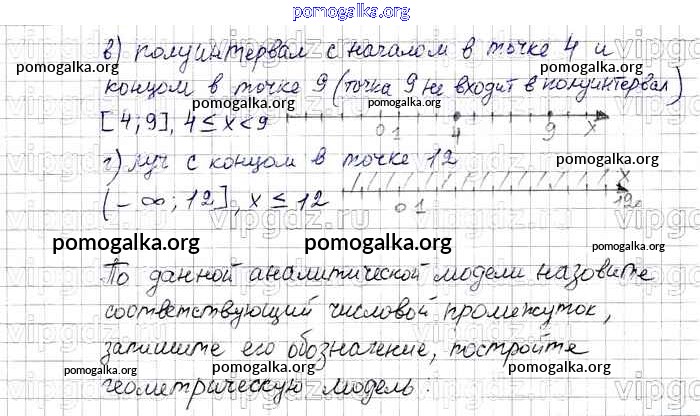 pomogalka.org
в) полуинтервал с началом в точке 4 и
pomogalka.org pomogalka.org pomogalka.org
концом в точке 9 (точка 9 не входит в полуинтервал)
pomogalka.org
[4;9], 4 ≤ x < 9 0 1 4 9 x
г) луч с концом в точке 12
pomogalka.org pomogalka.org
(-∞; 12], x ≤ 12 0 1 12 x
pomogalka.org pomogalka.org pomogalka.org
По данной аналитической модели назовите
соответствующий числовой промежуток,
запишите его обозначение, постройте
геометрическую модель: